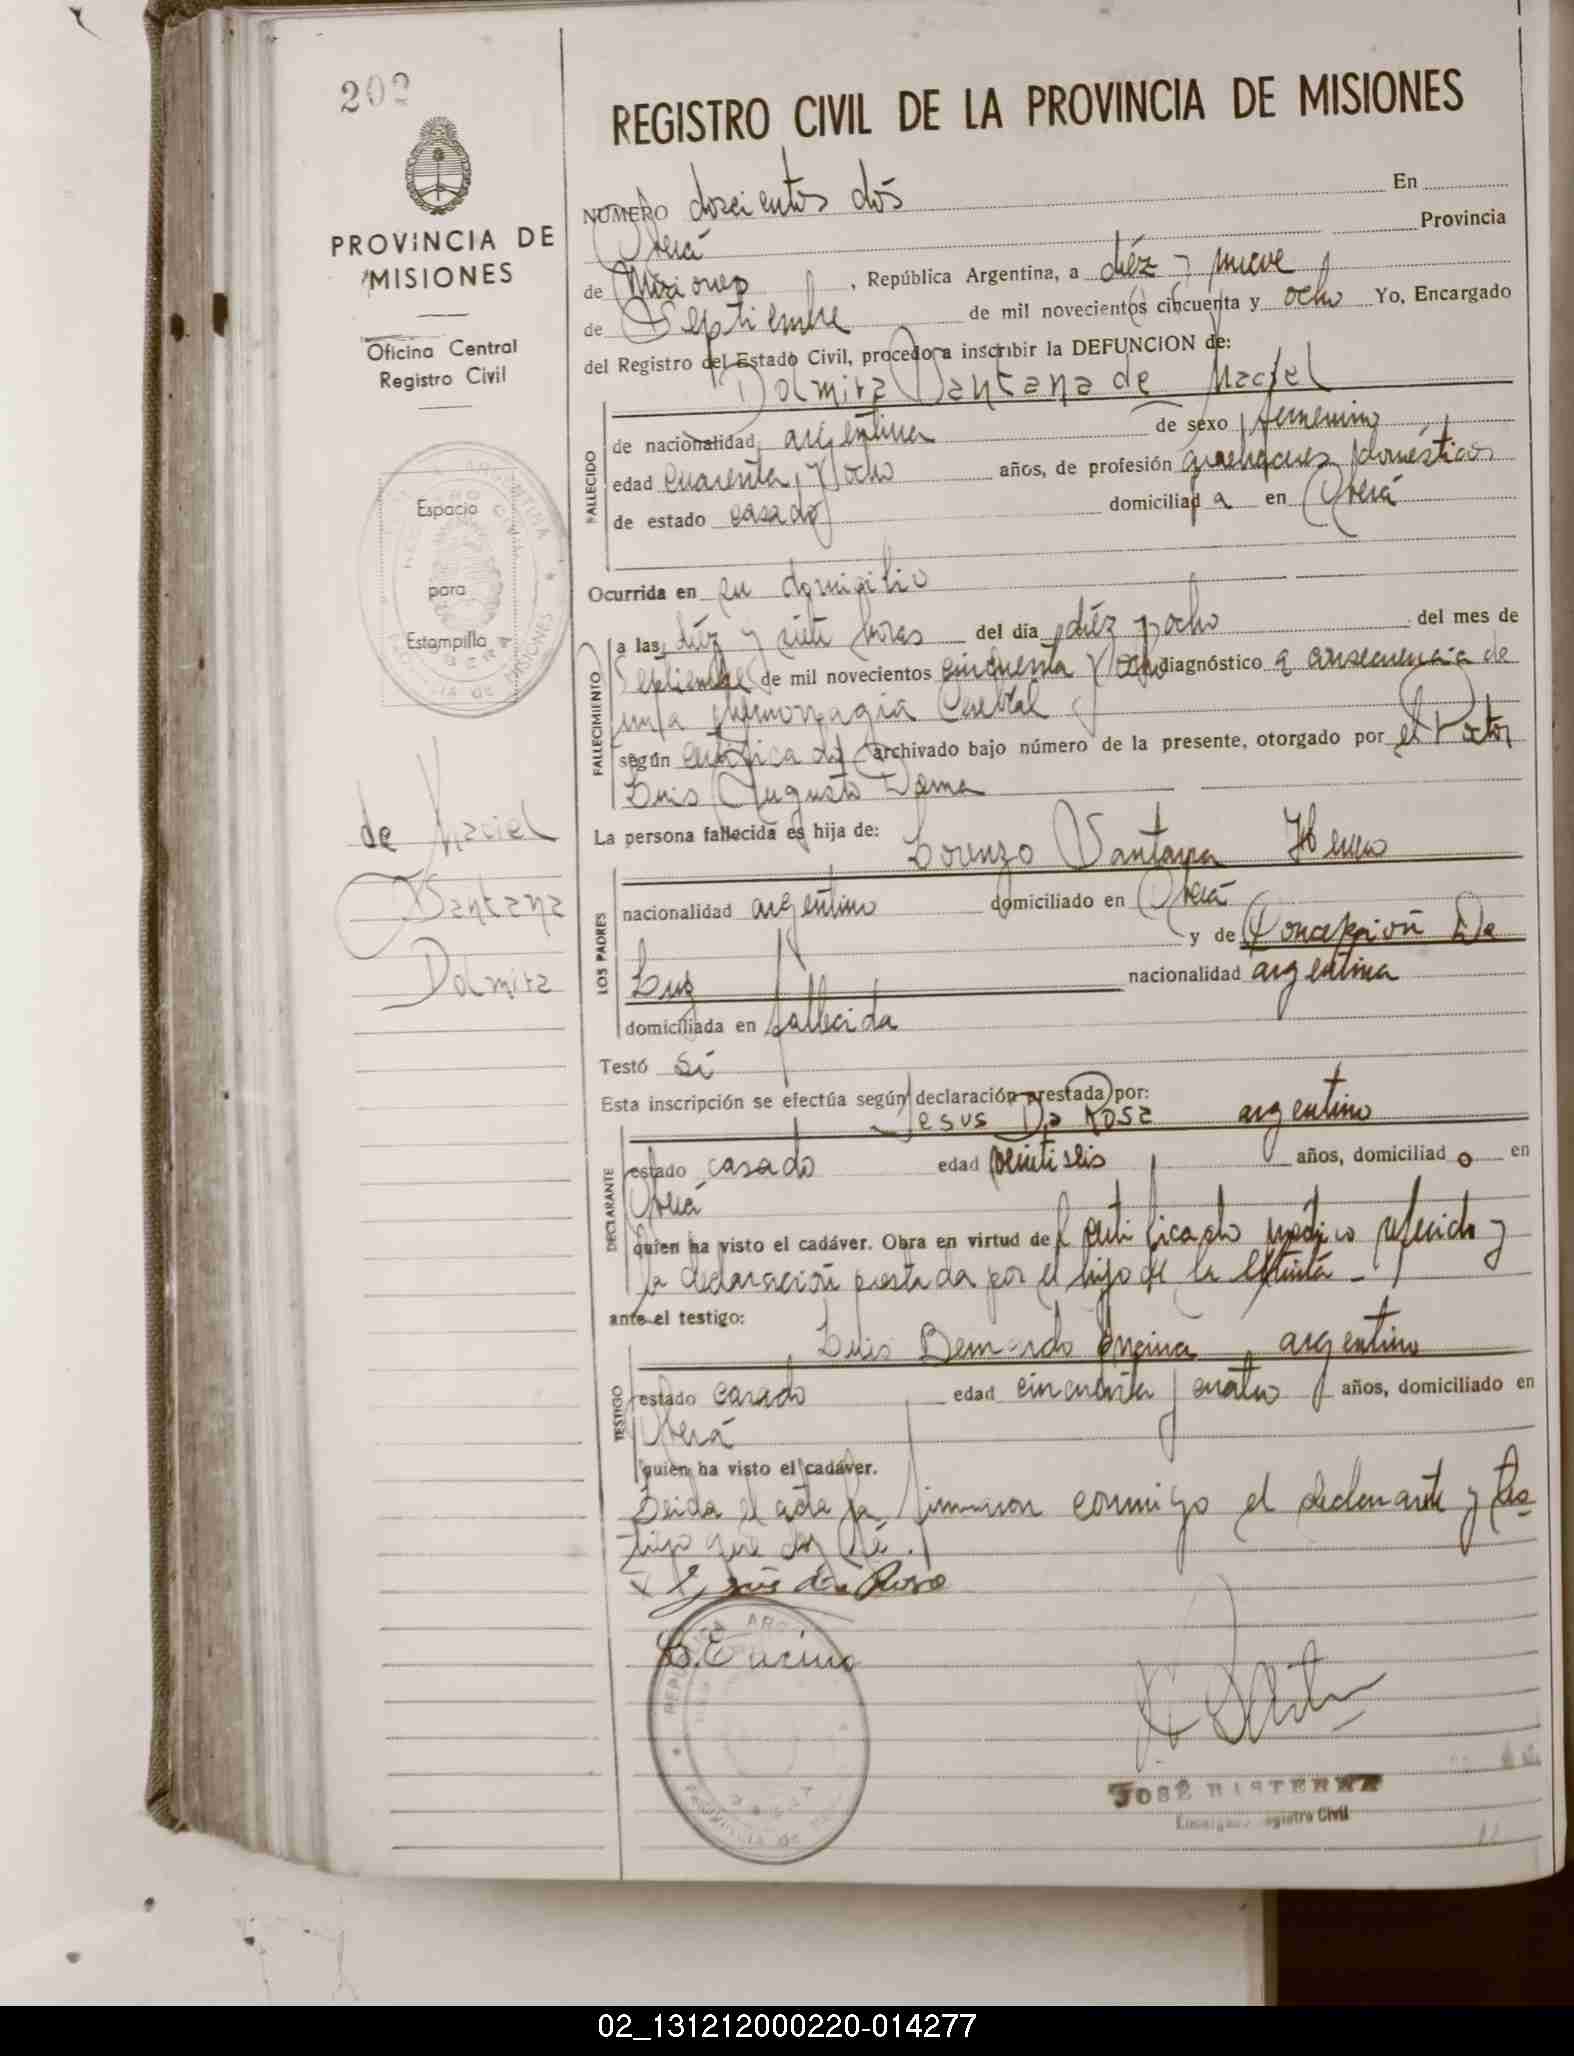 202
PROVINCIA DE
MISIONES
Oficina Central
Registro Civil
Espacio
para
Estampilla
de Maciel
Santana
Dolmira
REGISTRO CIVIL DE LA PROVINCIA DE MISIONES
NUMERO doscientos dós En
Oberá Provincia
de Misiones, República Argentina, a diéz y nueve
de Septiembre de mil novecientos cincuenta y ocho Yo, Encargado
del Registro del Estado Civil, procedo a inscribir la DEFUNCION de:
Dolmira Santana de Maciel
FALLECIDO
de nacionalidad argentina de sexo femenino
edad cuarenta y ocho años, de profesión quehaceres domésticos
de estado casado domiciliada en Oberá
Ocurrida en su domicilio
FALLECIMIENTO
a las diéz y siete horas del día diéz y ocho del mes de
Septiembre de mil novecientos cincuenta y ocho diagnóstico a consecuencia de
una hemorragia Cerebral
según certificado archivado bajo número de la presente, otorgado por el Doctor
Luis Augusto
La persona fallecida es hija de:
Lorenzo Santana
LOS PADRES
nacionalidad argentino domiciliado en Oberá
y de Concepción Da
Luz nacionalidad argentina
domiciliada en fallecida
Testó si
Esta inscripción se efectúa según declaración prestada por:
Jesus Da Rosa argentino
DECLARANTE
estado casado edad veintiseis años, domiciliado en
Oberá
quien ha visto el cadáver. Obra en virtud del certificado médico referido y
la declaración prestada por el hijo de la extinta -
ante el testigo:
Luis Bernardo Encina argentino
TESTIGO
estado casado edad cincuenta y cuatro años, domiciliado en
Oberá
quien ha visto el cadáver.
Leida el acta la firmaron conmigo el declarante y tes-
tigo que doy fé.
Jesús da Rosa
L. B. Encina
JOSÉ BASTERRA
Encargado Registro Civil
02_131212000220-014277